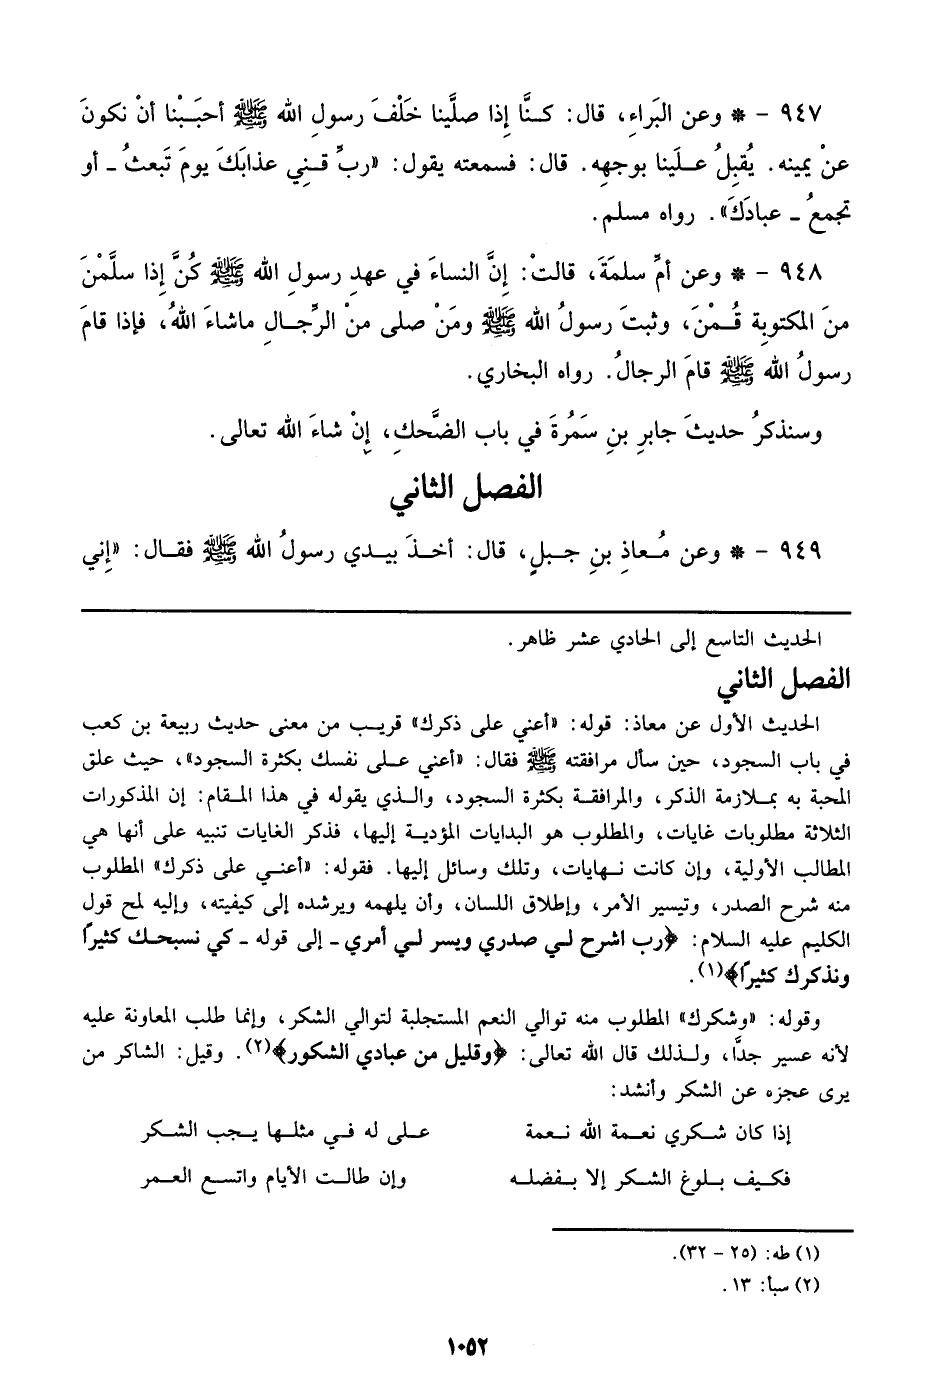 ٩٤٧ - * وعن البَراءِ، قال: كـنَّا إذا صلَّينا خَلْفَ رسولِ الله ﷺ أحبَـبْنا أنْ نكونَ
عنْ يمينه. يُقبِلُ علَينا بوجهِه. قال: فسمعته يقول: «ربِّ قـنِي عذابَكَ يومَ تَبعثُ ـ أو
تجمعُ ـ عبادَكَ». رواه مسلم.
٩٤٨ - * وعن أمِّ سلمَةَ، قالتْ: إنَّ النساءَ في عهدِ رسولِ الله ﷺ كُنَّ إذا سلَّمْنَ
منَ المكتوبةِ قُـمْنَ، وثبتَ رسولُ الله ﷺ ومَنْ صلى منَ الرِّجـالِ ماشاءَ اللهُ، فإذا قامَ
رسولُ الله ﷺ قامَ الرجالُ. رواه البخاري.
وسنذكرُ حديثَ جابرِ بنِ سَمُرةَ في باب الضَّحكِ، إنْ شاءَ الله تعالى.
الفصل الثاني
٩٤٩ - * وعن مُـعاذِ بنِ جبلٍ، قال: أخـذَ بيـدي رسولُ الله ﷺ فقـال: «إني
الحديث التاسع إلى الحادي عشر ظاهر.
الفصل الثاني
الحديث الأول عن معاذ: قوله: «أعني على ذكرك» قريب من معنى حديث ربيعة بن كعب
في باب السجود، حين سأل مرافقته ﷺ فقال: «أعني عـلى نفسك بكثرة السجود»، حيث علق
المحبة به بمـلازمة الذكر، والمرافقـة بكثرة السجود، والـذي يقوله في هذا المـقام: إن المذكورات
الثلاثة مطلوبات غايات، والمطلوب هو البدايات المؤديـة إليها، فذكر الغايات تنبيه على أنها هي
المطالب الأولية، وإن كانت نـهايات، وتلك وسائل إليها. فقوله: «أعنـي على ذكرك» المطلوب
منه شرح الصدر، وتيسير الأمر، وإطلاق اللسان، وأن يلهمه ويرشده إلى كيفيته، وإليه لمح قول
الكليم عليه السلام: ﴿رب اشرح لـي صدري ويسر لـي أمري ـ إلى قوله ـ كي نسبحـك كثيرًا
ونذكرك كثيرًا﴾(١).
وقوله: «وشكرك» المطلوب منه توالي النعم المستجلبة لتوالي الشكر، وإنما طلب المعاونة عليه
لأنه عسير جدًّا، ولـذلك قال الله تعالى: ﴿وقليل من عبادي الشكور﴾(٢). وقيل: الشاكر من
يرى عجزه عن الشكر وأنشد:
إذا كان شـكري نعـمة الله نـعمة علـى له فـي مثلـها يـجب الشـكر
فكـيف بـلوغ الشـكر إلا بـفضلـه وإن طالـت الأيام واتسـع العـمر
(١) طه: (٢٥ - ٣٢).
(٢) سبأ: ١٣.
١٠٥٢